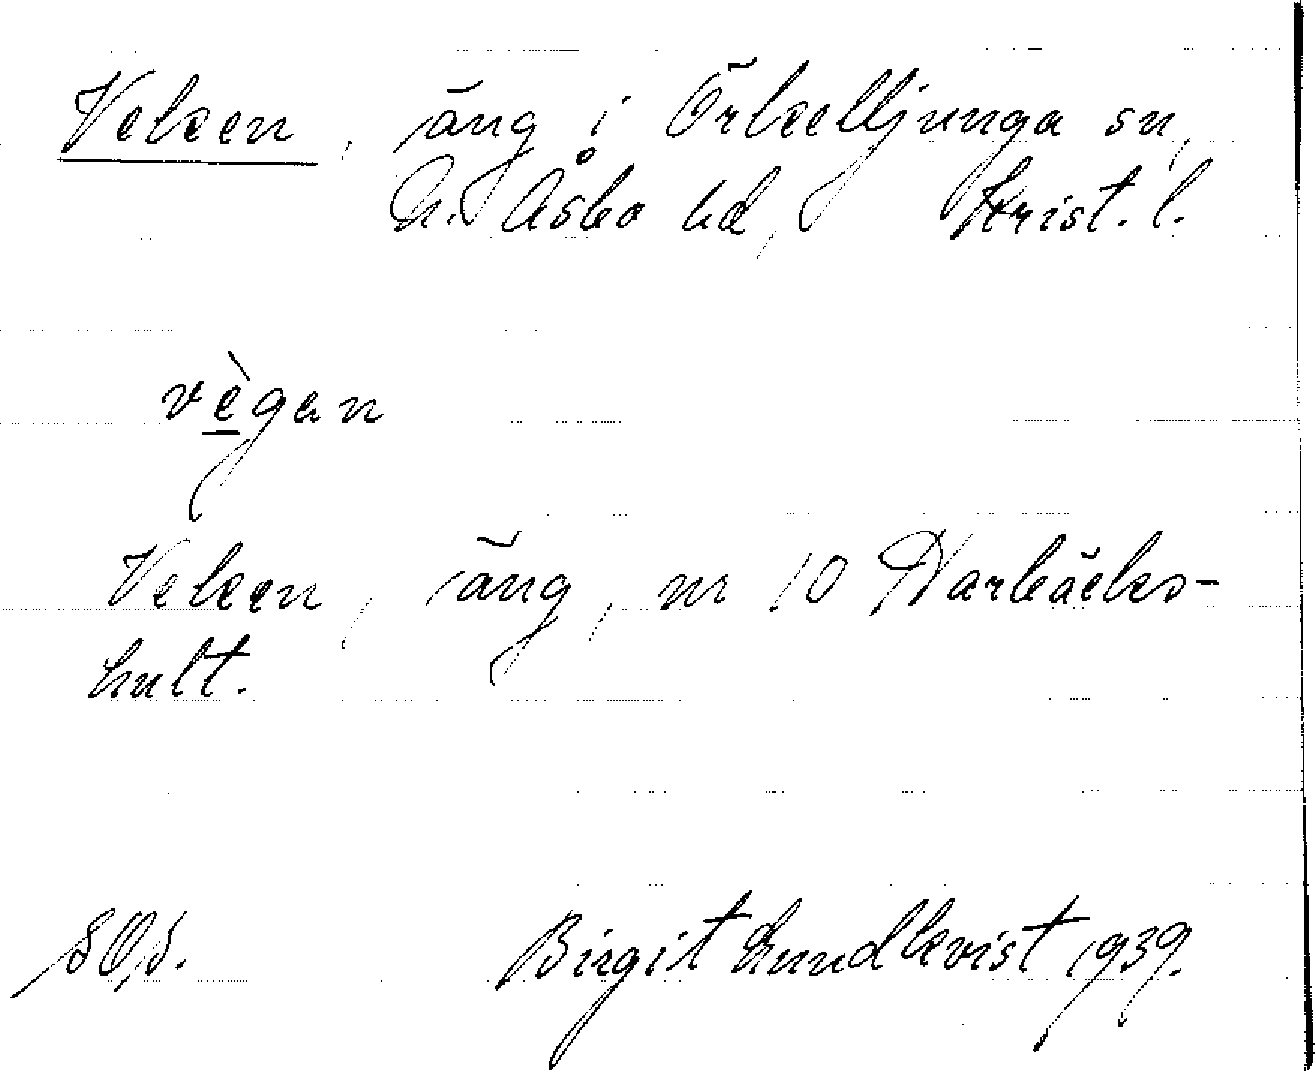 Veken, äng i Örkelljunga sn,
N. Åsbo hd, Krist. l.
vègan
Veken, äng, nr 10 Harbäcks-
hult.
Birgit Lundkvist 1939.